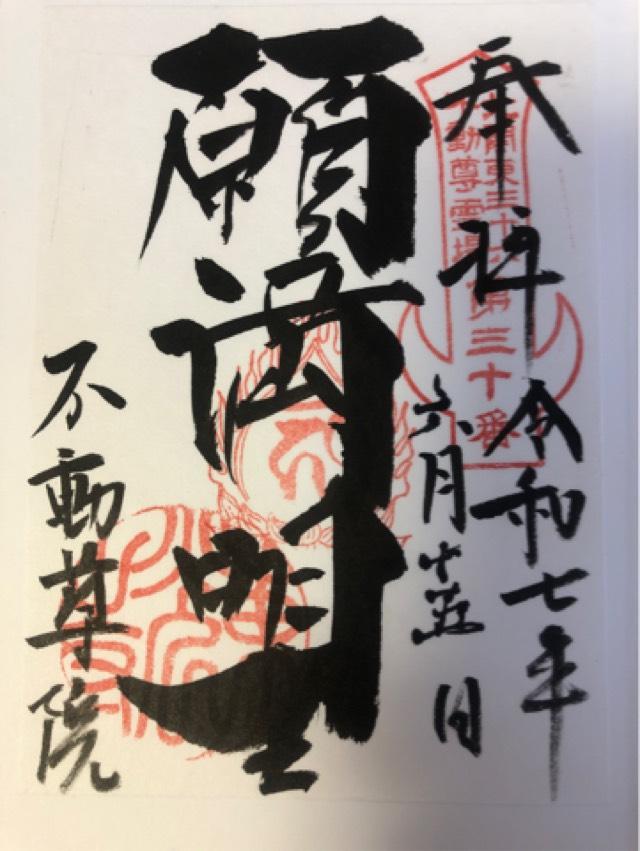 奉拝
令和七年
六月十五日
北関東三十六
不動尊霊場第三十番
願満明王
不動草院